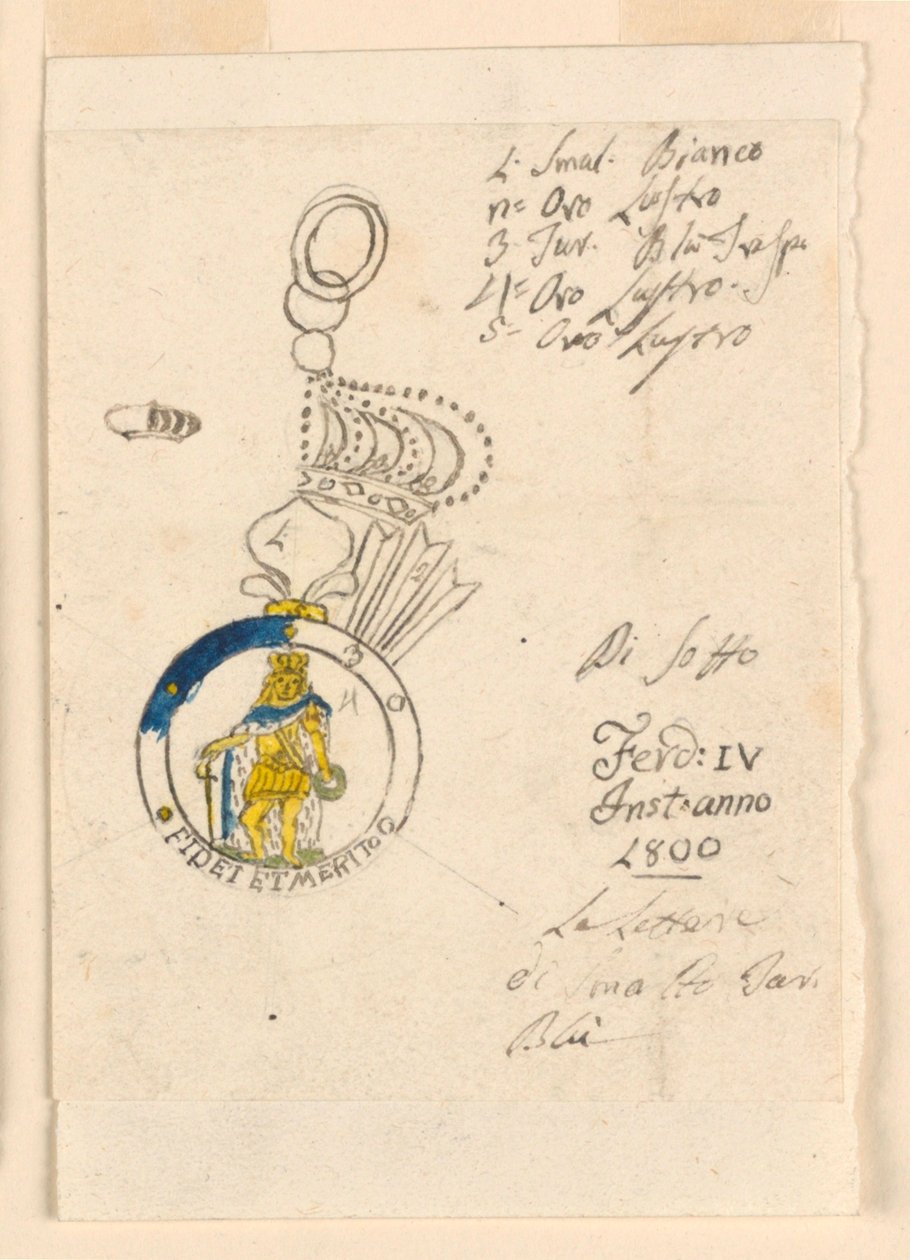 1. Smal. Bianco
n= Oro Lustro
3. Tur. Blù Trasp.
4= Oro Lustro.
5- Oro Lustro
1.
5
3
4
FIDEI ET MERITO
Di Sotto
Ferd: IV
Inst: anno
1800
Le Lettere
di Smalto Tur.
Blù